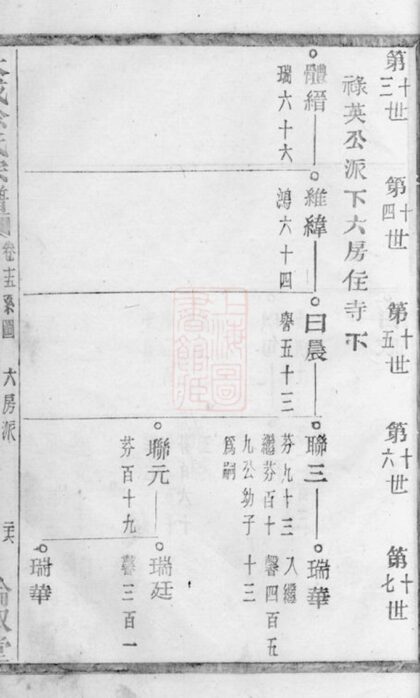 第十三世
第十四世
第十五世
第十六世
第十七世
祿英公派下大房住寺下
體縉
瑞六十六
維緯
鴻六十四
曰晨
譽五十三
聯三
芬九十三
繼芬百十
九公幼子
爲嗣
瑞華
入繼
馨四百五
十三
聯元
芬百十九
瑞廷
馨三百一
瑞華
卷十五系圖
大房派
上海圖書館藏